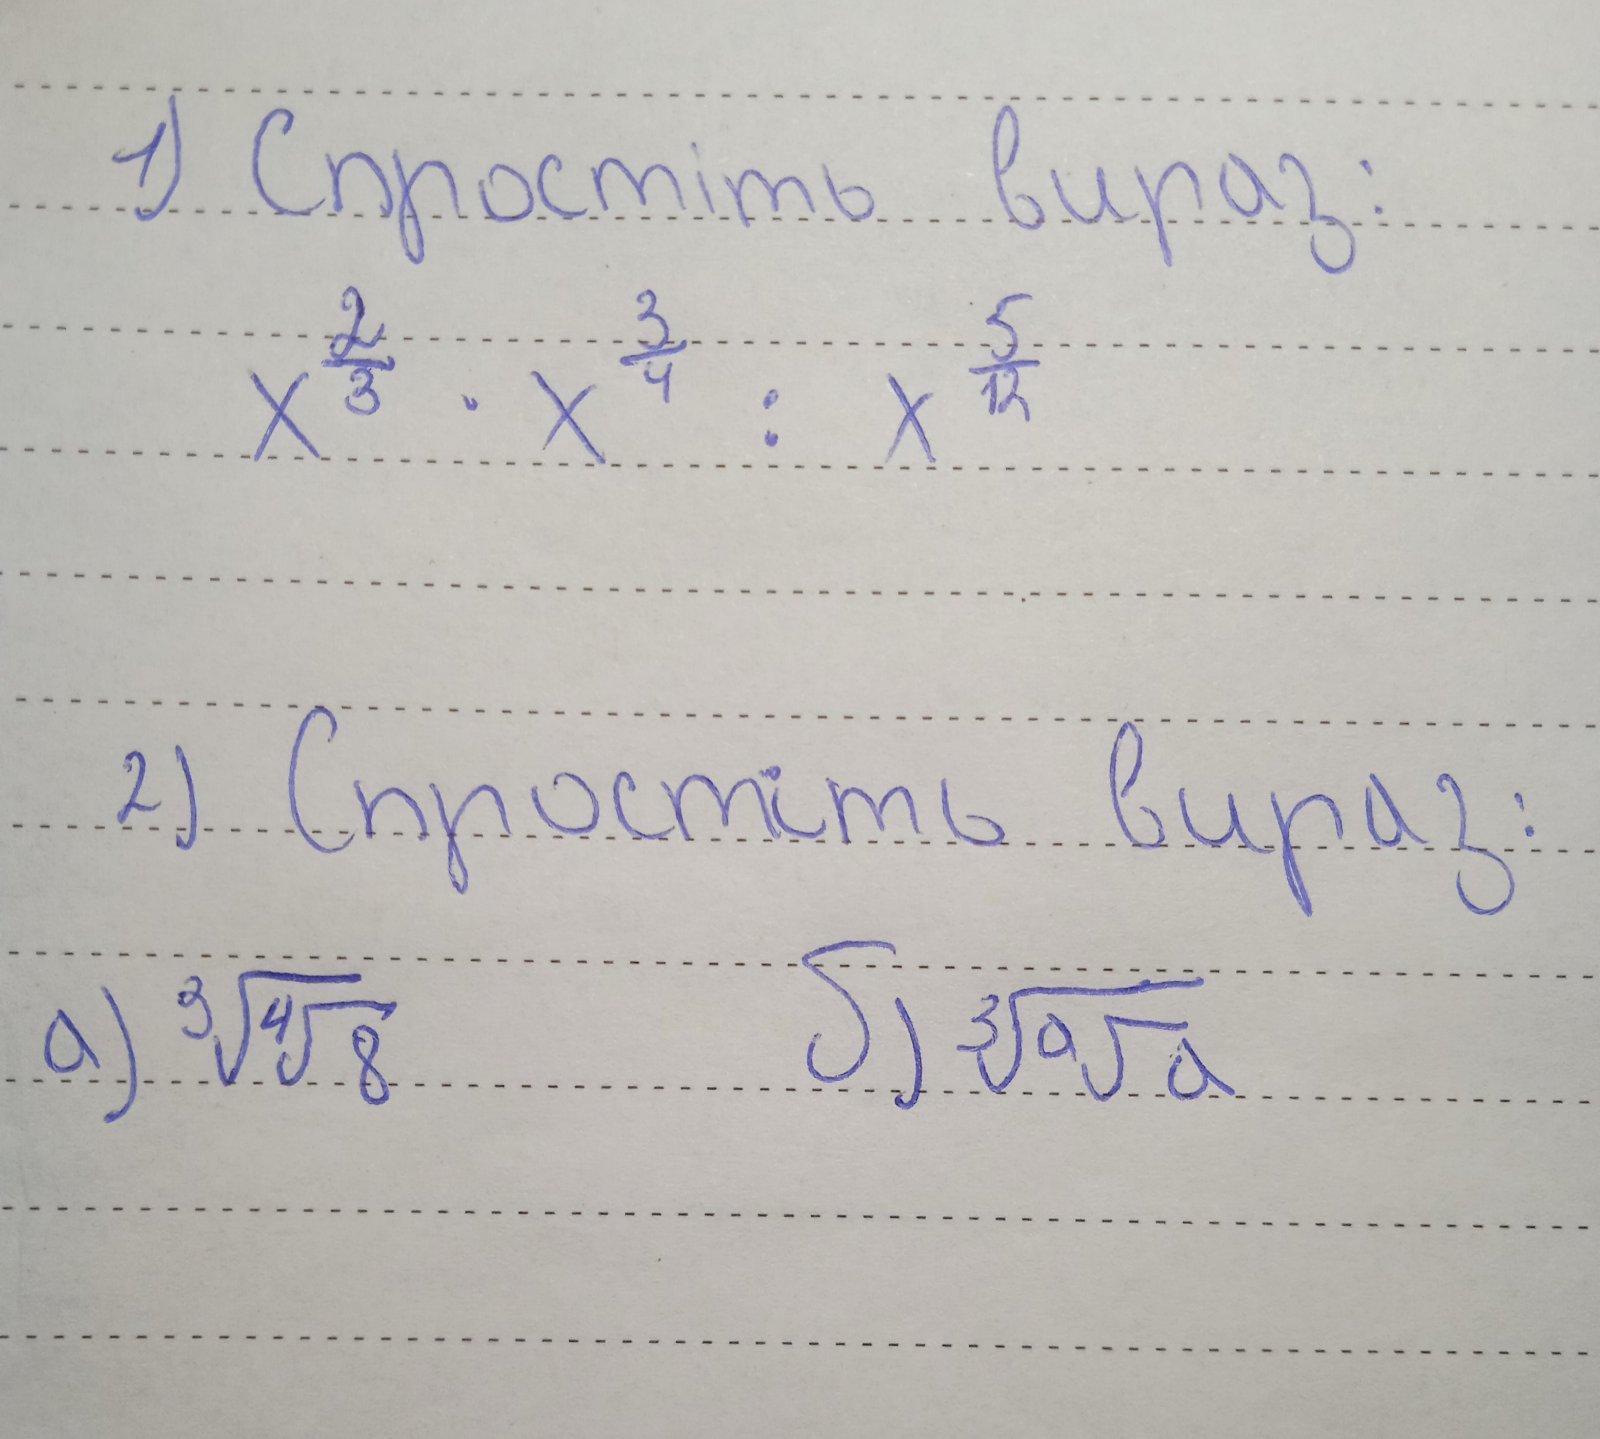 1) Спростіть вираз:
x^{\frac{2}{3}} · x^{\frac{3}{4}} : x^{\frac{5}{12}}
2) Спростіть вираз:
а) \sqrt[3]{\sqrt[4]{8}} б) \sqrt[3]{\sqrt[a]{a}}